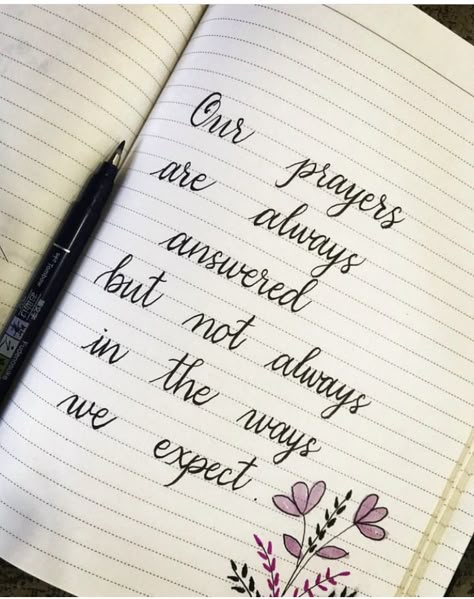 Our prayers
are always
answered
but not always
in the ways
we expect.
Tombow